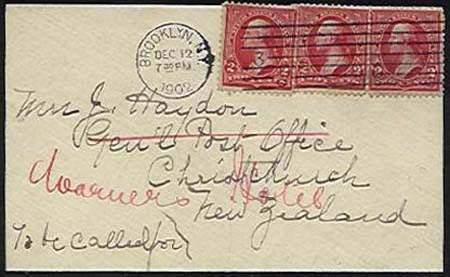 BROOKLYN, N.Y.
DEC 12
7 30 PM
1902
3
2 2
Mrs J. Haydon
Gen'l Post Office
Christchurch
Warners Hotel
New Zealand
To be Called for